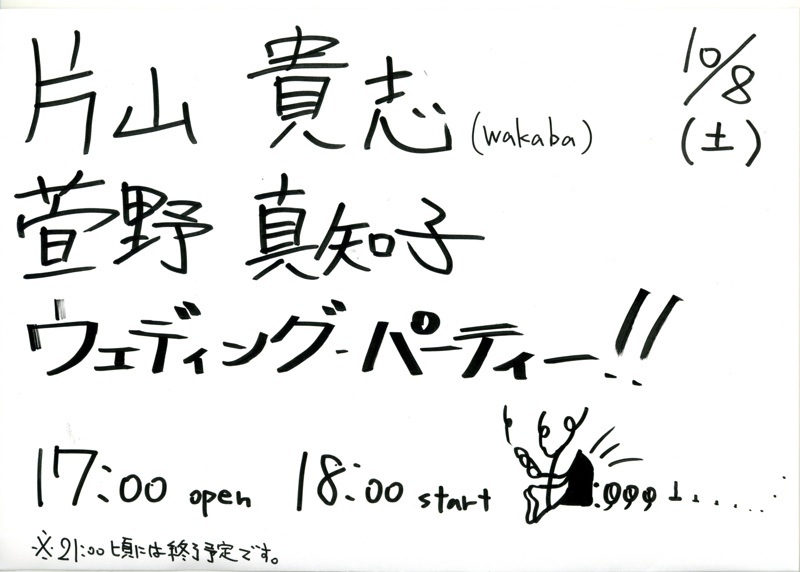 片山 貴志 (wakaba)
10/8
(土)
萱野 真知子
ウェディング・パーティー!!
17:00 open 18:00 start
※21:00頃には終了予定です。